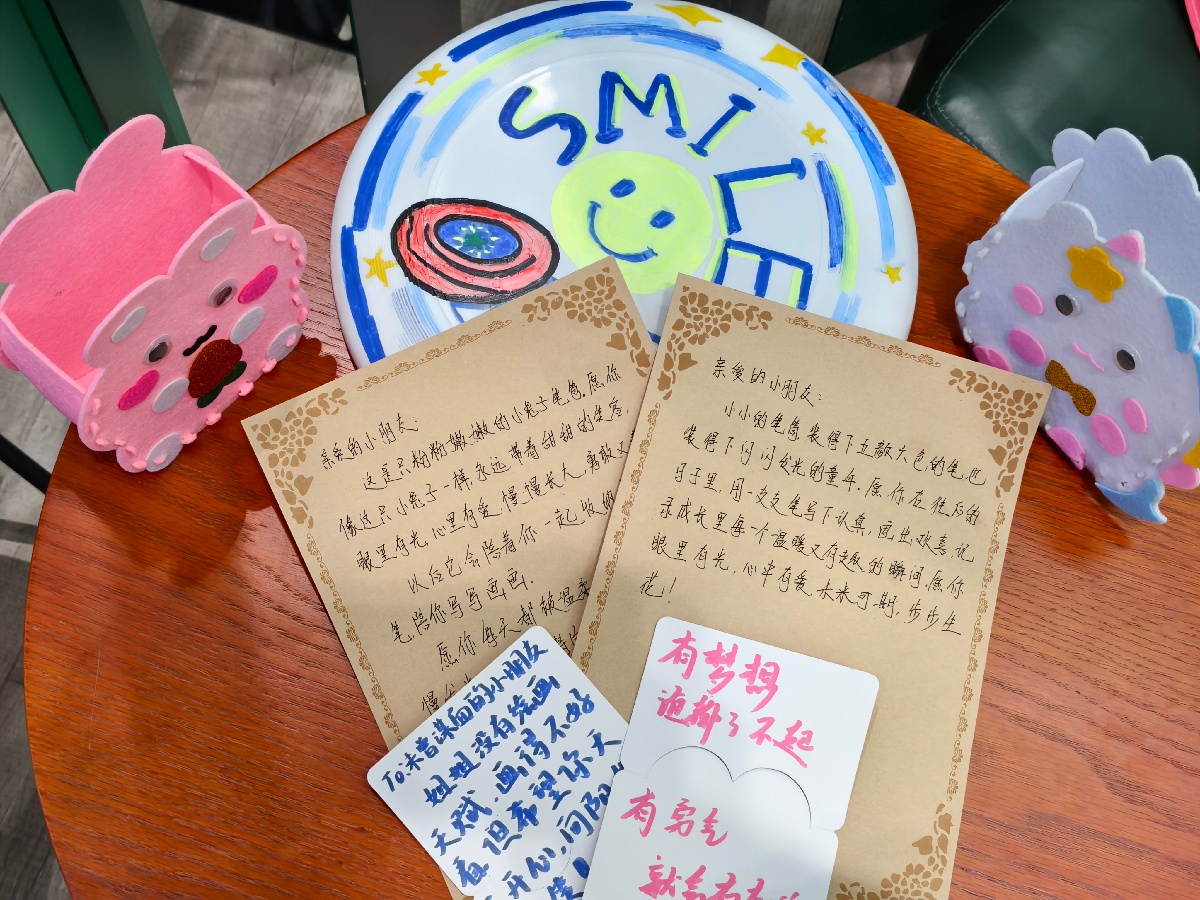 SMILE
亲爱的小朋友:
这是只粉粉嫩嫩的小兔子笔筒,愿你
像这只小兔子一样,永远带着甜甜的笑容,
眼里有光,心里有爱,慢慢长大,勇敢又
以后它会陪着你一起收纳
笔,陪你写写画画.
愿你每天都被温柔
慢
亲爱的小朋友:
小小的笔筒装得下五颜六色的笔,也
装得下闪闪发光的童年.愿你在往后的
日子里,用一支支笔写下认真,画出欢喜,记
录成长里每一个温暖又有趣的瞬间.愿你
眼里有光,心中有爱,未来可期,步步生
花!
To:未曾谋面的小朋友
姐姐没有绘画
天赋,画得不好
看,但希望你天
开心,向阳
有梦想
道都了不起
有勇气
就会有